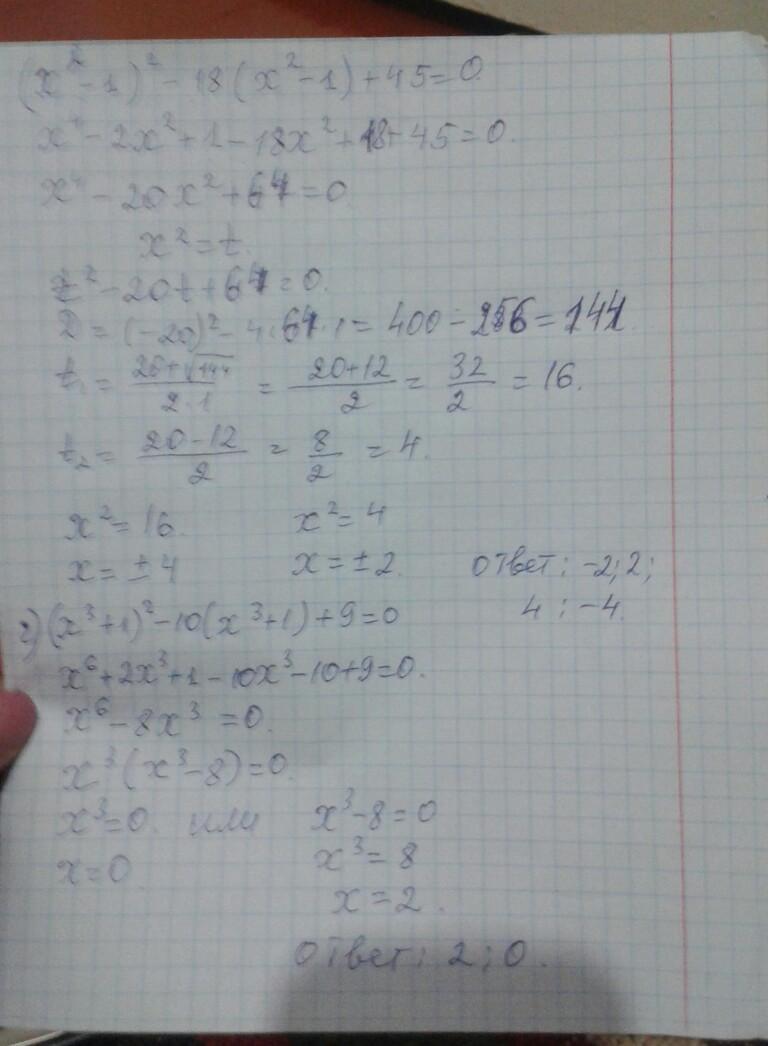 (x² - 1)² - 18(x² - 1) + 45 = 0.
x⁴ - 2x² + 1 - 18x² + 18 + 45 = 0.
x⁴ - 20x² + 64 = 0
x² = t.
t² - 20t + 64 = 0.
D = (-20)² - 4·64·1 = 400 - 256 = 144.
t₁ = (20+√144)/(2·1) = (20+12)/2 = 32/2 = 16.
t₂ = (20-12)/2 = 8/2 = 4.
x² = 16. x² = 4
x = ±4 x = ±2. ответ: -2; 2;
4; -4.
г) (x³ + 1)² - 10(x³ + 1) + 9 = 0
x⁶ + 2x³ + 1 - 10x³ - 10 + 9 = 0.
x⁶ - 8x³ = 0.
x³(x³ - 8) = 0.
x³ = 0. или x³ - 8 = 0
x = 0. x³ = 8
x = 2.
ответ: 2; 0.